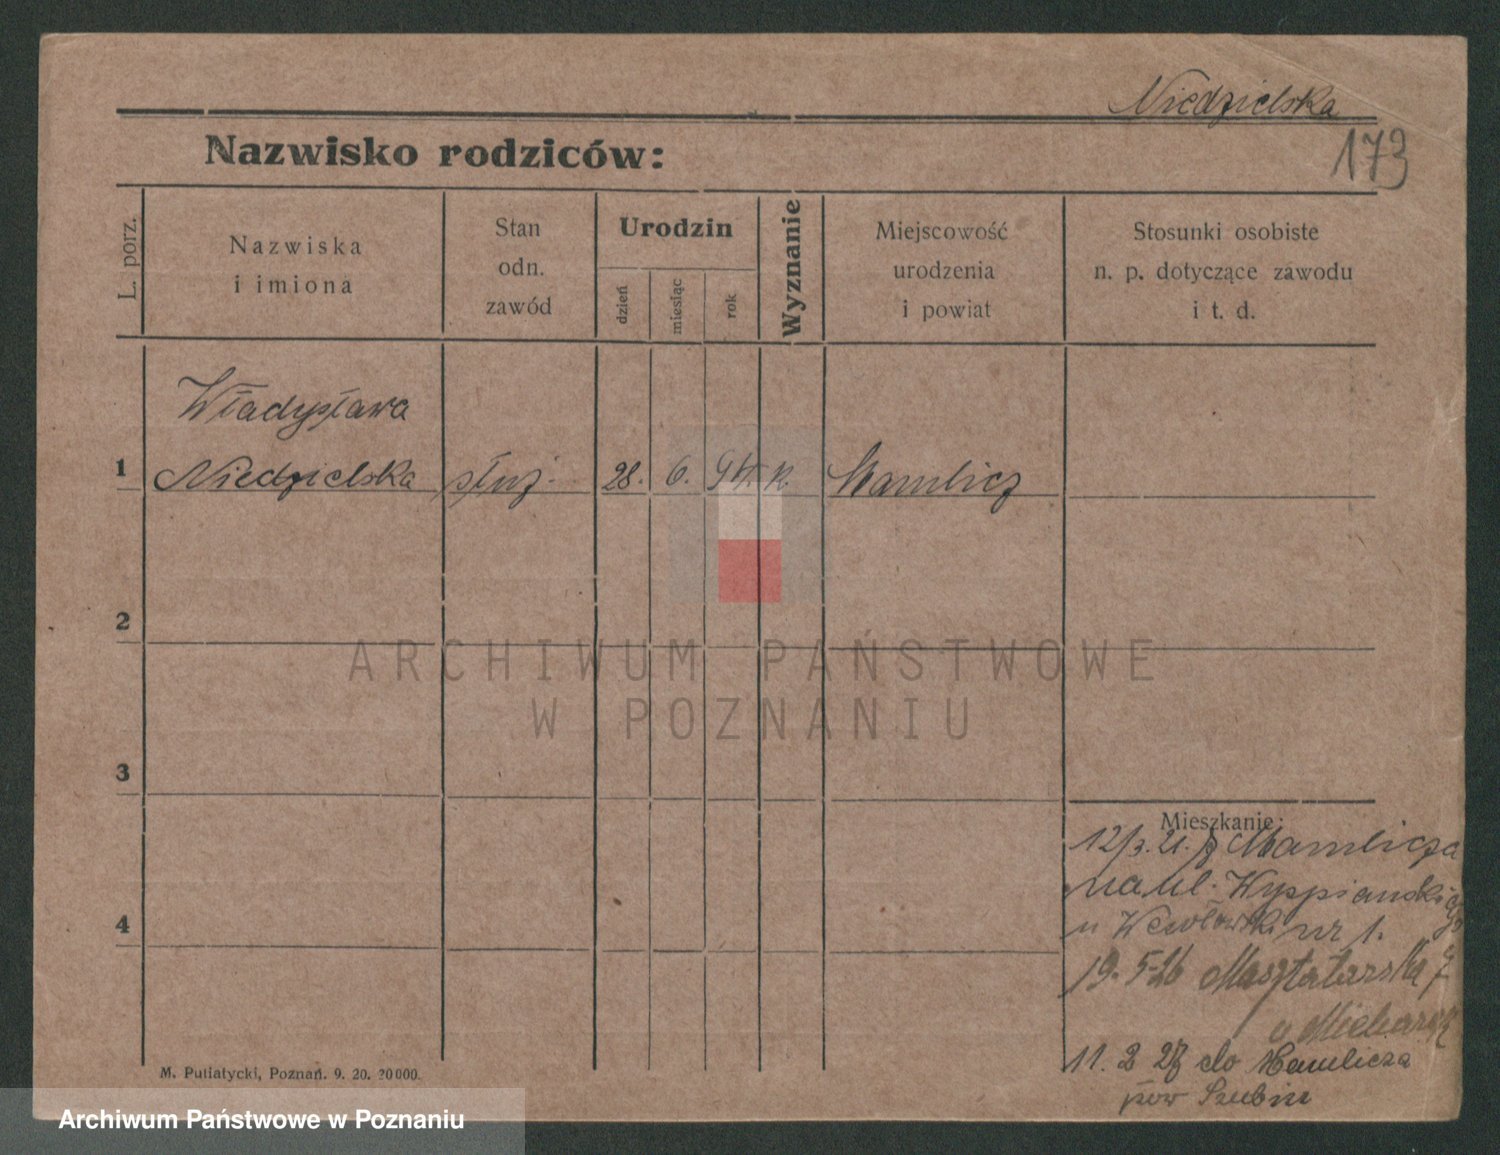 Niedzielska
173
Nazwisko rodziców:
L. porz.
Nazwiska
i imiona
Stan
odn.
zawód
Urodzin
dzień
miesiąc
rok
Wyznanie
Miejscowość
urodzenia
i powiat
Stosunki osobiste
n. p. dotyczące zawodu
i t. d.
Władysława
1 Niedzielska służ. 28. 6. k. Mamlicz
2
ARCHIWUM PAŃSTWOWE
W POZNANIU
3
4
Mieszkanie:
12/3.21. z Mamlicza
na ul. Wyspiańskiego
u nr 1.
19.5-26 Masztalarska 7
u
11. 2 27 do Mamlicza
pow Szubin
M. Putiatycki, Poznań. 9. 20. 20000.
Archiwum Państwowe w Poznaniu